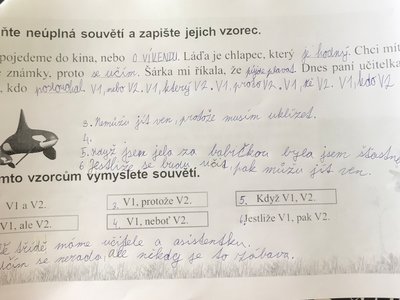 ňte neúplná souvětí a zapište jejich vzorec.
pojedeme do kina, nebo o víkendu. Láďa je chlapec, který je hodný. Chci mít
známky, proto se učím. Šárka mi říkala, že půjde plavat. Dnes paní učitelka
, kdo V1, nebo V2. V1, který V2. V1, proto V2. V1, že V2. V1, kdo V2
3. Nemůžu jít ven, protože musím uklízet.
4.
5. Když jsem jela za babičkou byla jsem šťastná
6. Jestliže se budu učit, pak můžu jít ven.
mto vzorcům vymyslete souvětí.
V1 a V2.
3. V1, protože V2.
5. Když V1, V2.
V1, ale V2.
4. V1, neboť V2.
6. Jestliže V1, pak V2.
třídě máme učitele a asistentku.
učím se nerada, ale někdy je to zábava.